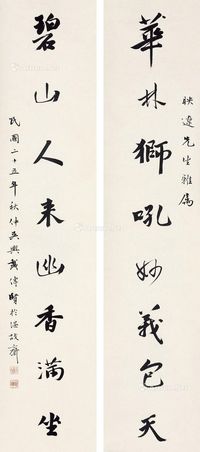 華林獅吼妙義包天
映遼先生雅屬
碧山人来幽香滿坐
民國二十五年秋仲吳興戴傳賢於温故齋